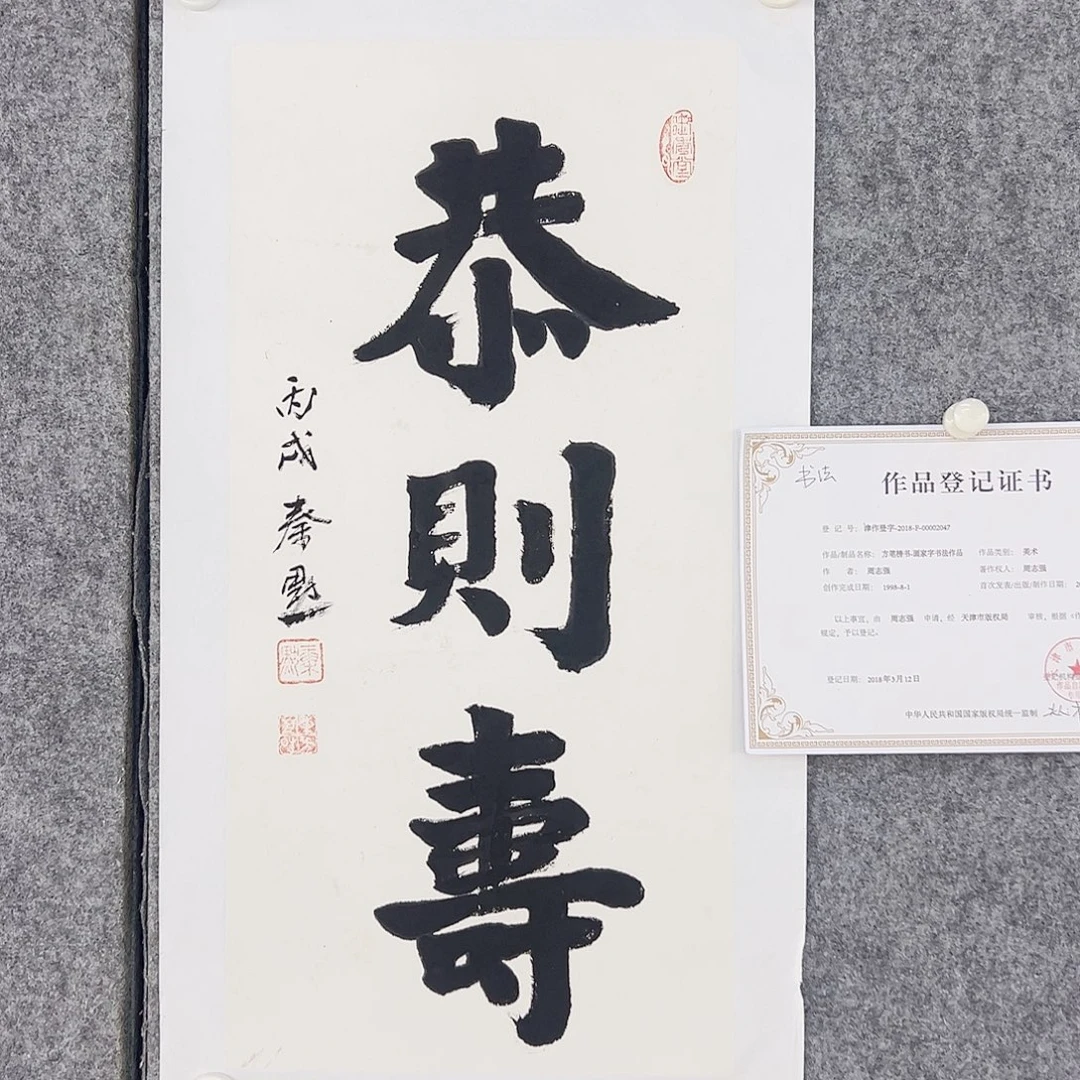 恭則壽
丙戌 秦
书法
作品登记证书
登 记 号: 津作登字-2018-F-00002047
作品/制品名称: 方笔榜书-画家字书法作品 作品类别: 美术
作 者: 周志强 著作权人: 周志强
创作完成日期: 1998-8-1 首次发表/出版/制作日期: 2
以上事宜, 由 周志强 申请, 经 天津市版权局 审核, 根据《作
规定, 予以登记。
登记日期: 2018年3月12日
登记机构
中华人民共和国国家版权局统一监制